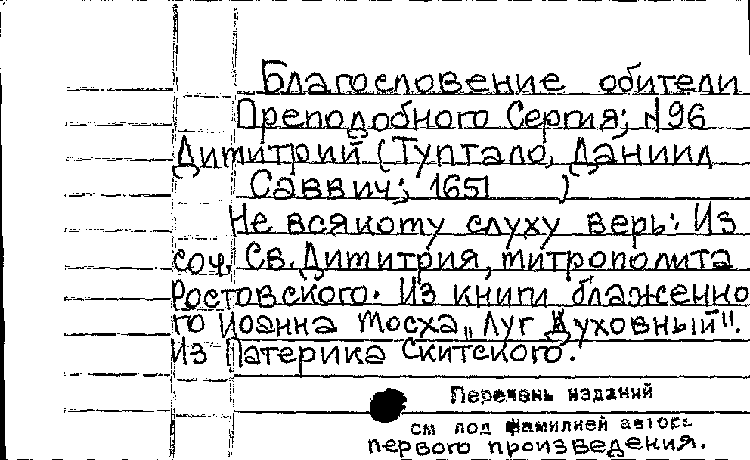 Благословение обители
Преподобного Сергия; №96
Димитрий (Туптало, Даниил
Саввич; 1651 )
Не всякому слуху верь: Из
соч. Св. Димитрия, митрополита
Ростовского. Из книги блаженно
го Иоанна Мосха „Луг Духовный".
Из Патерика Скитского.
Перечень изданий
см под фамилией автора
первого произведения.